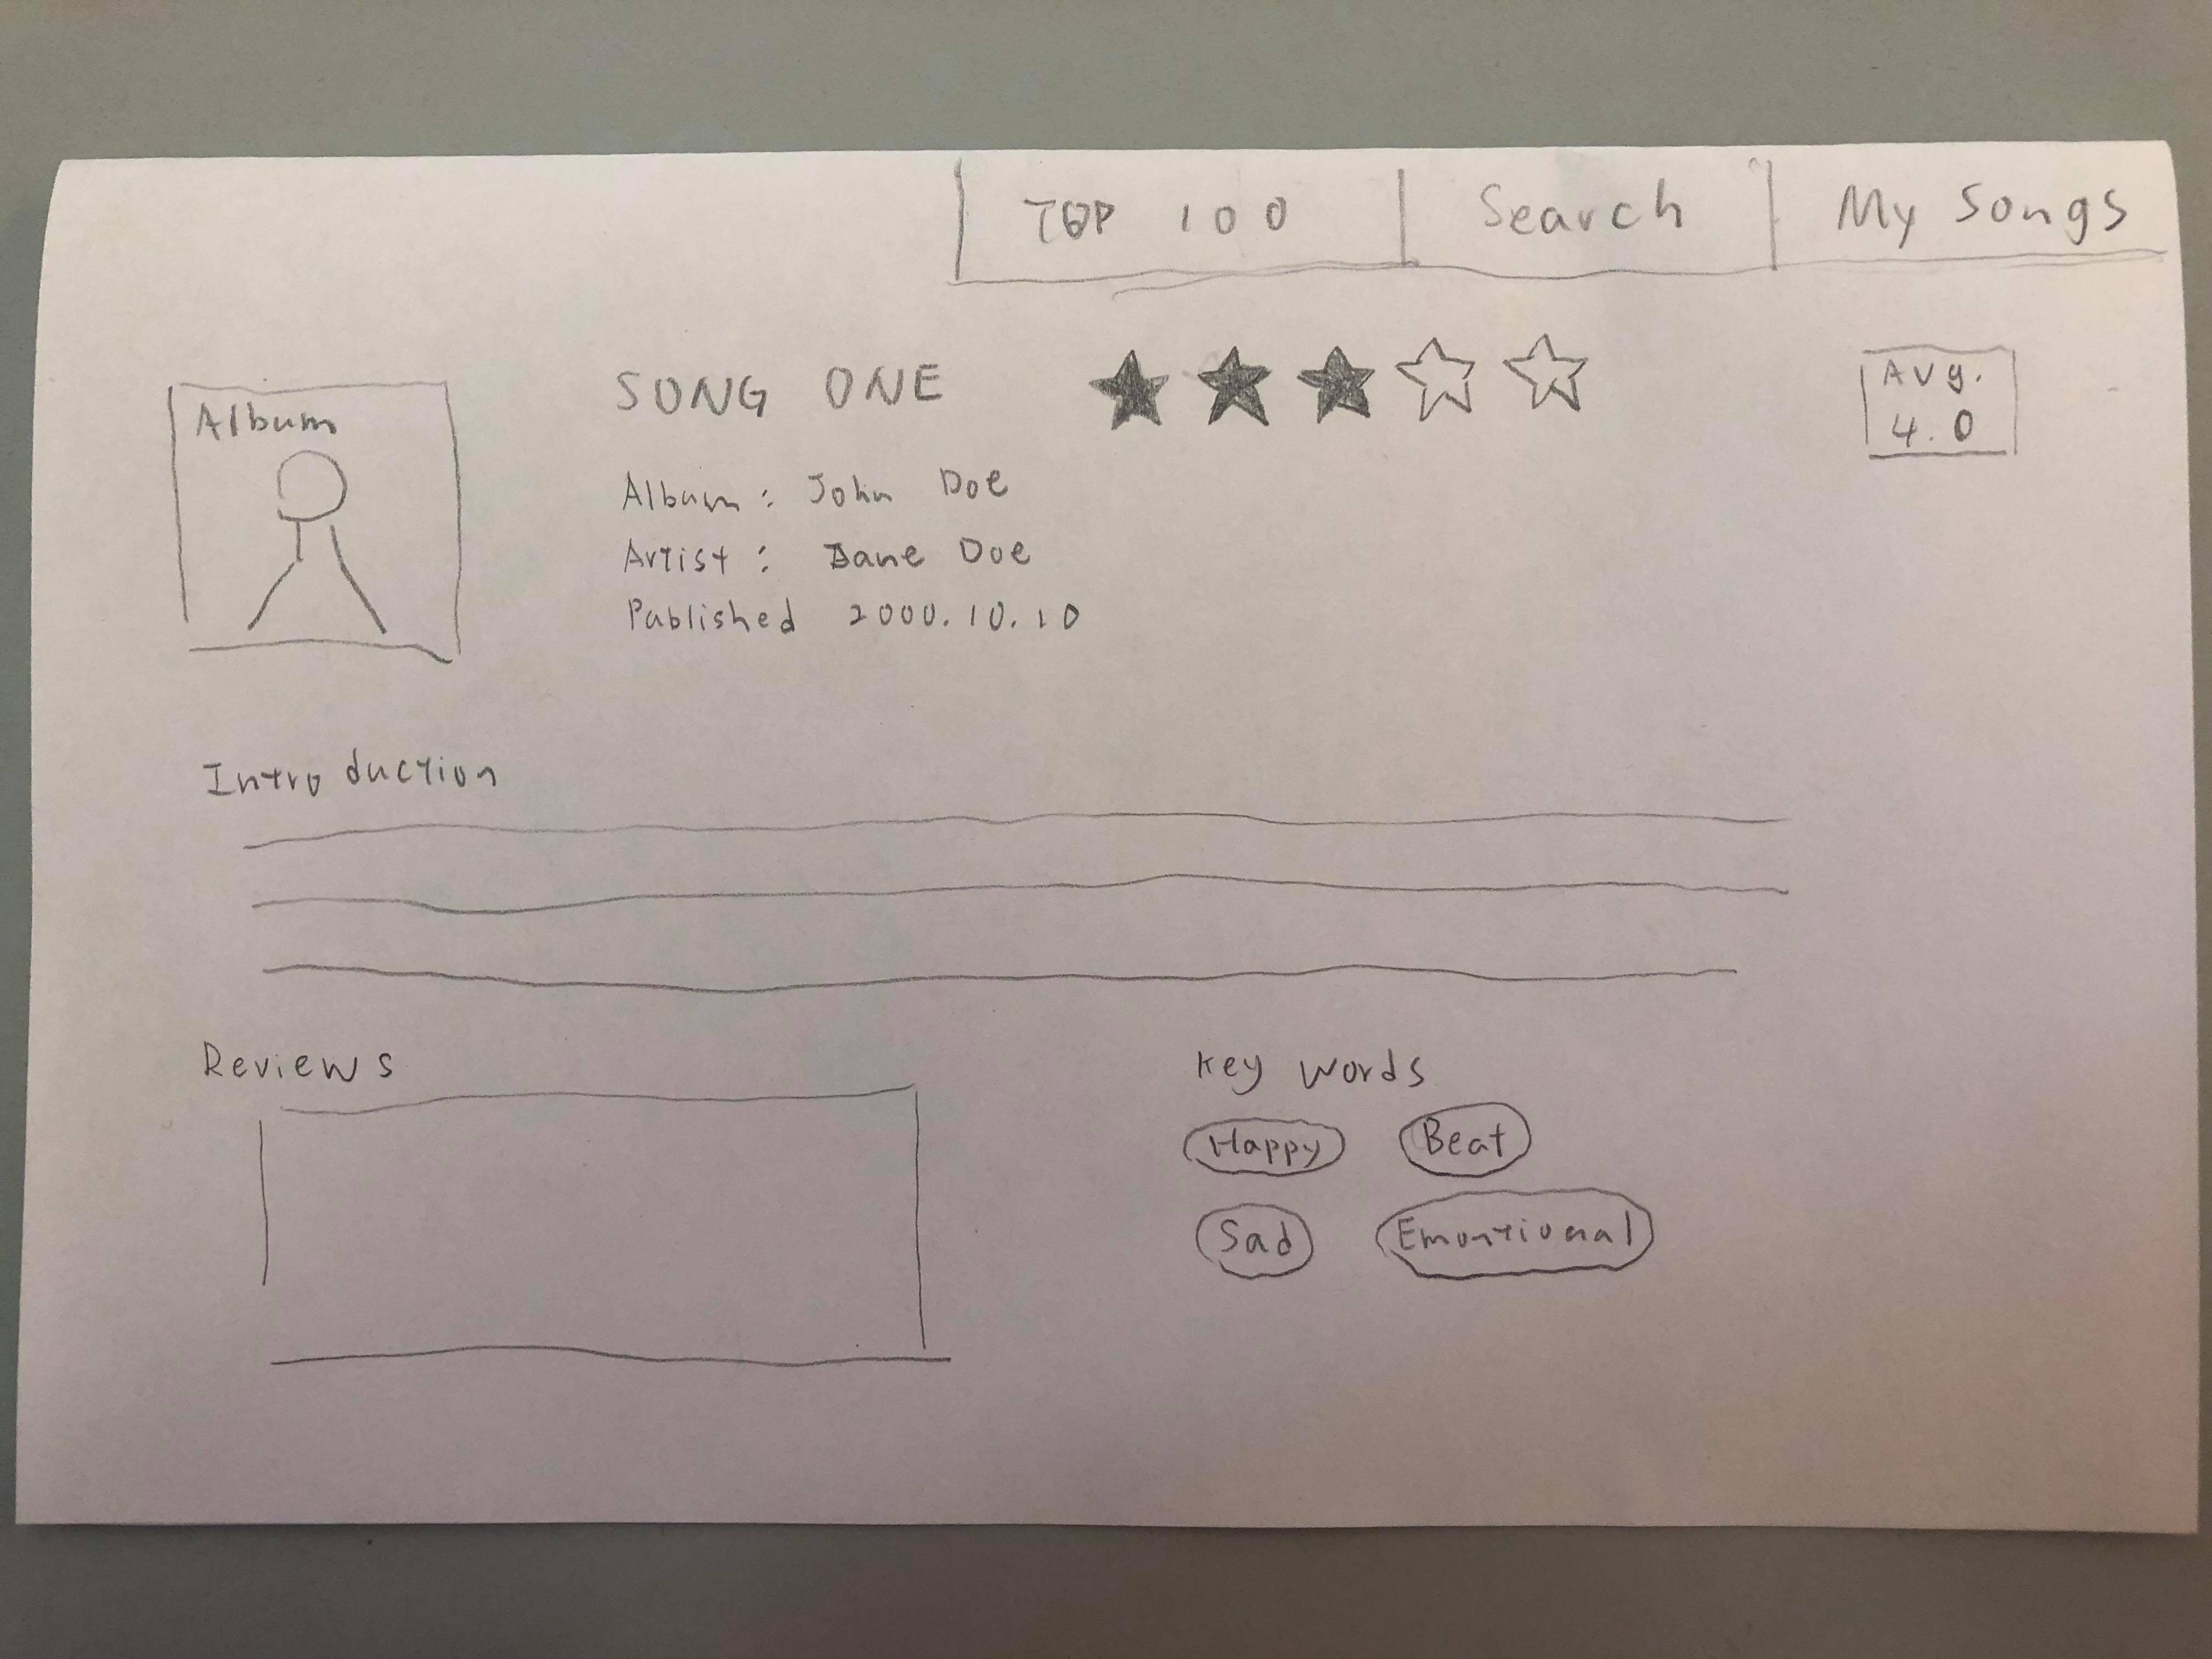 TOP 100 Search My Songs
SONG ONE
Avg.
4.0
Album
Album : John Doe
Artist : Jane Doe
Published 2000.10.10
Introduction
Reviews
Key Words
Happy Beat
Sad Emontional